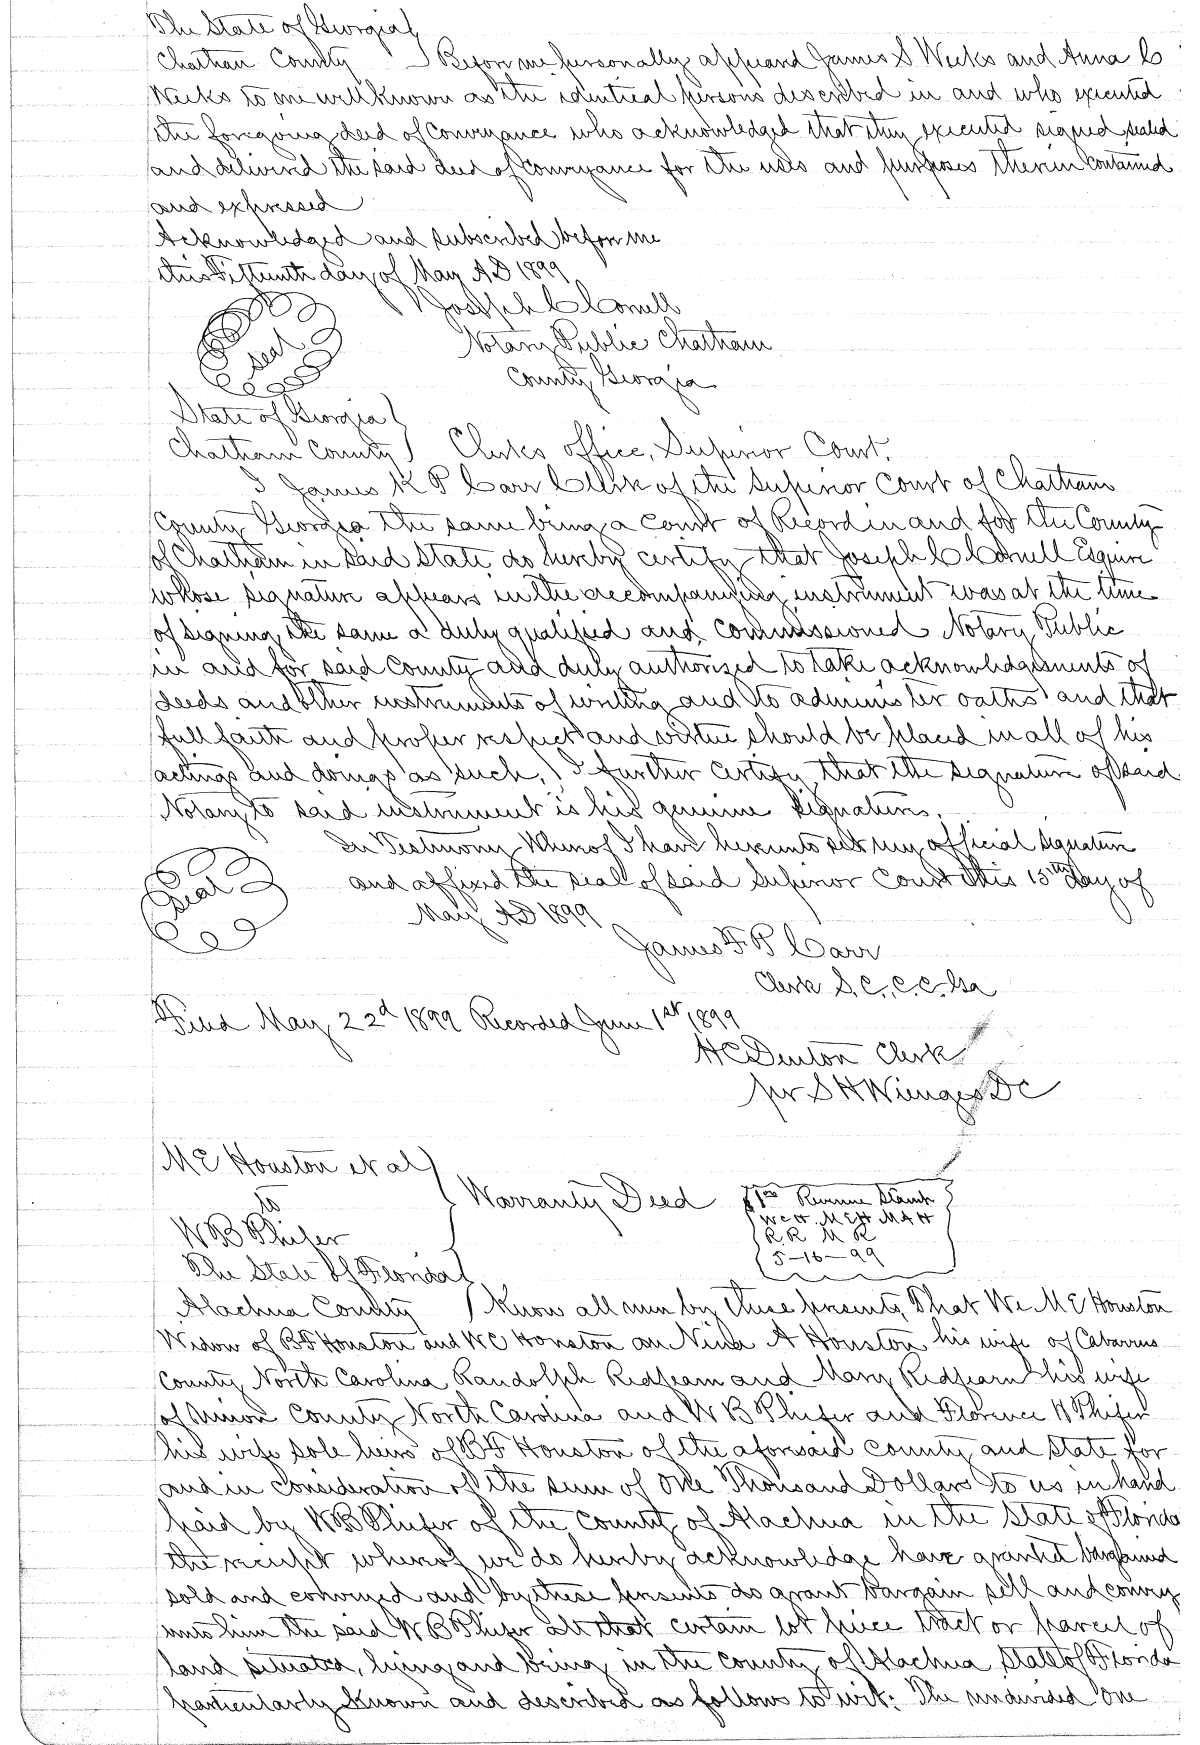 The State of Georgia
Chatham County Before me personally appeard James S Weeks and Anna C
Weeks to me well known as the identical persons described in and who executed
the foregoing deed of Conveyance who acknowledged that they executed signed sealed
and delivered the said deed of Conveyance for the uses and purposes therein contained
and expressed
Acknowledged and subscribed before me
this Fifteenth day of May AD 1899
Joseph C Cornell
Seal
Notary Public Chatham
County Georgia
State of Georgia
Chatham County Clerks office, Superior Court.
I James K P Carr Clerk of the Superior Court of Chatham
County Georgia the same being a Court of Record in and for the County
of Chatham in said State do hereby certify that Joseph C Cornell Esquire
whose signature appears in the accompanying instrument was at the time
of signing the same a duly qualified and commissioned Notary Public
in and for said County and duly authorized to take acknowledgements of
deeds and other instruments of writing and to administer oaths and that
full faith and proper respect and virtue should be placed in all of his
actings and doings as such, I further certify that the signature of said
Notary to said instrument is his genuine signature.
In Testimony Whereof I have hereunto set my official signature
and affixed the seal of said Superior Court this 15th day of
Seal
May AD 1899
James F P Carr
Clerk S.C., C.C. Ga
Filed May 22d 1899 Recorded June 1st 1899
HC Denton Clerk
per S H Wienges DC
ME Houston et al
to
Warranty Deed
Revenue Stamp
WCH MEH MAH
RR MR
5-16-99
WB Phifer
The State of Florida
Alachua County Know all men by these presents, That We ME Houston
Widow of BF Houston and WC Houston an Nina A Houston his wife of Cabarrus
County North Carolina Randolph Redfearn and Mary Redfearn his wife
of Union County North Carolina and W B Phifer and Florence H Phifer
his wife sole heirs of BF Houston of the aforesaid county and state for
and in consideration of the sum of One Thousand Dollars to us in hand
paid by WB Phifer of the County of Alachua in the State of Florida
the receipt whereof we do hereby acknowledge have granted bargained
sold and conveyed and by these presents do grant bargain sell and convey
unto him the said W B Phifer all that certain lot piece tract or parcel of
land situated, lying and being in the County of Alachua State of Florida
particularly known and described as follows to wit: The undivided one